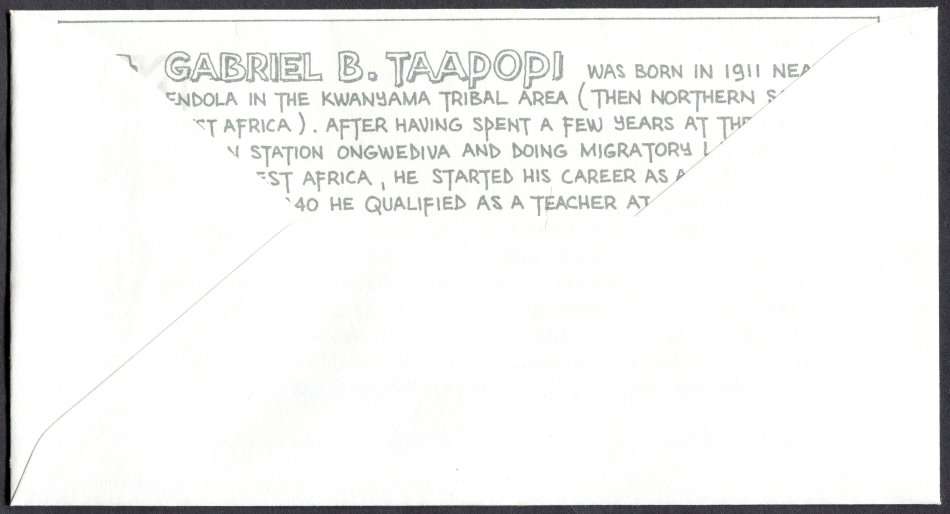 GABRIEL B. TAAPOPI WAS BORN IN 1911
IN THE KWANYAMA TRIBAL AREA (THEN NORTHERN
AFRICA). AFTER HAVING SPENT A FEW YEARS AT
STATION ONGWEDIVA AND DOING MIGRATORY
AFRICA, HE STARTED HIS CAREER AS
HE QUALIFIED AS A TEACHER AT